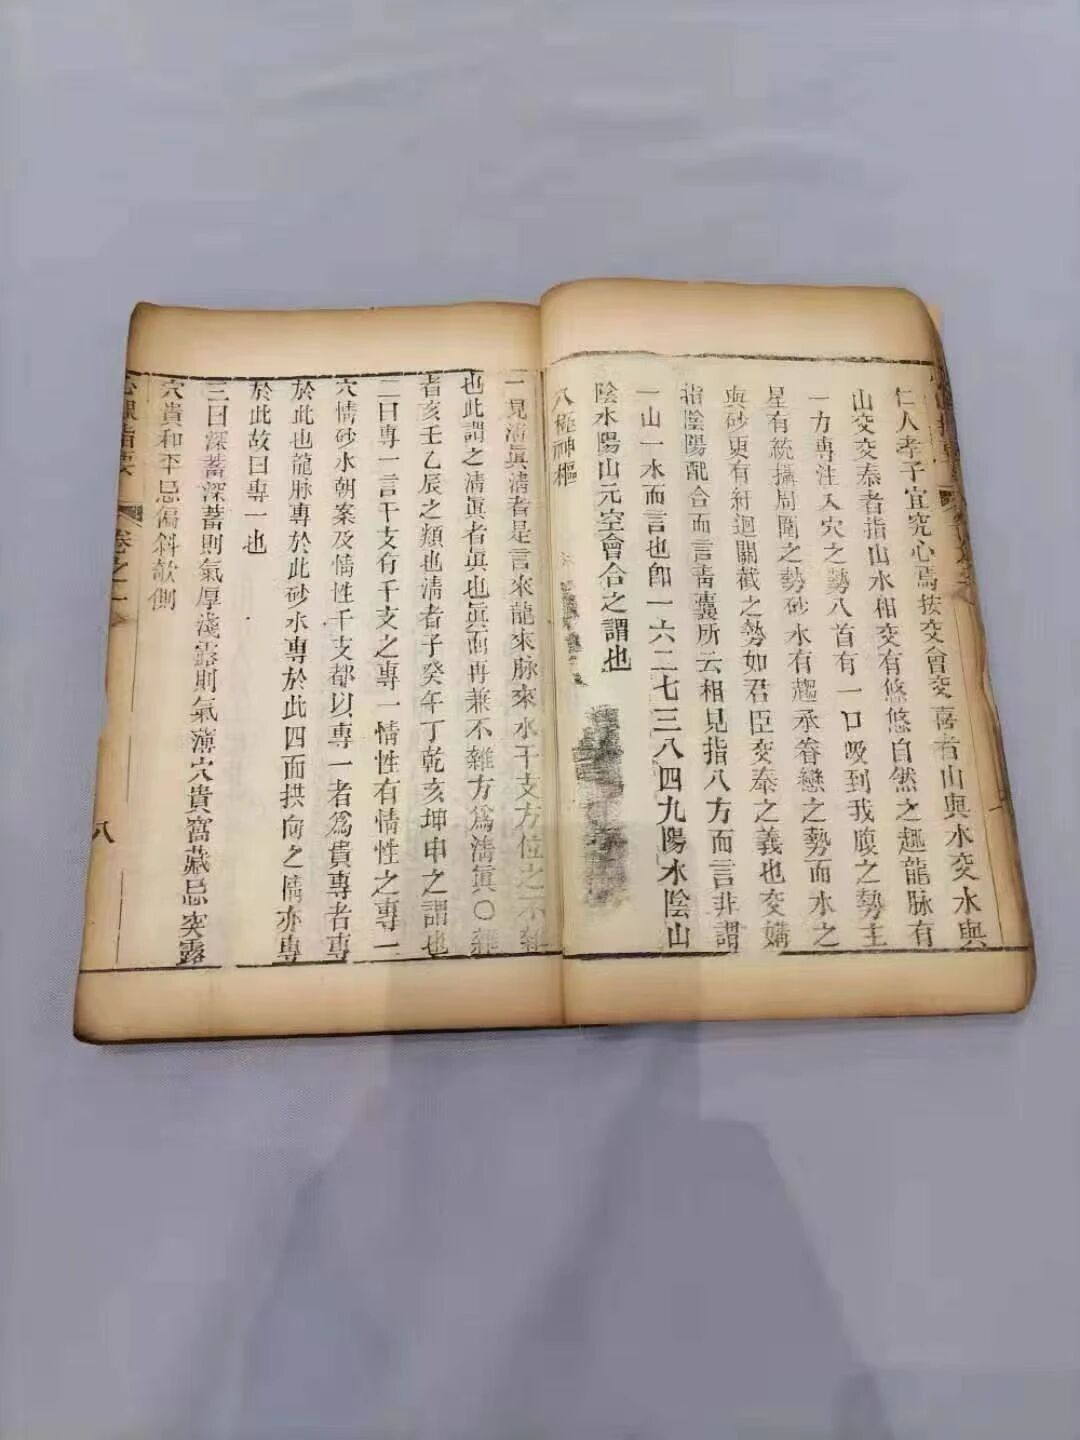 仁人孝子宜究心焉按交會交喜者山與水交水與
山交交泰者指山水相交有悠悠自然之趣龍脉有
一方專注入穴之勢八首有一口吸到我腹之勢主
星有統攝周圍之勢砂水有趨承眷戀之勢而水之
與砂更有紆迴關截之勢如君臣交泰之義也交媾
指陰陽配合而言靑囊所云相見指八方而言非謂
一山一水而言也卽一六二七三八四九陽水陰山
陰水陽山元空會合之謂也
八極神樞
一見清眞清者是言來龍來脉來水干支方位之不雜
也此謂之清眞者眞也眞而再兼不雜方爲清眞〇雜
者亥壬乙辰之類也清者子癸午丁乾亥坤申之謂也
二曰專一言干支有干支之專一情性有情性之專一
穴情砂水朝案及情性干支都以專一者爲貴專者專
於此也龍脉專於此砂水專於此四面拱向之情亦專
於此故曰專一也
三曰深蓄深蓄則氣厚淺露則氣薄穴貴窩藏忌突露
穴貴和平忌偏斜欹側
卷之一
八